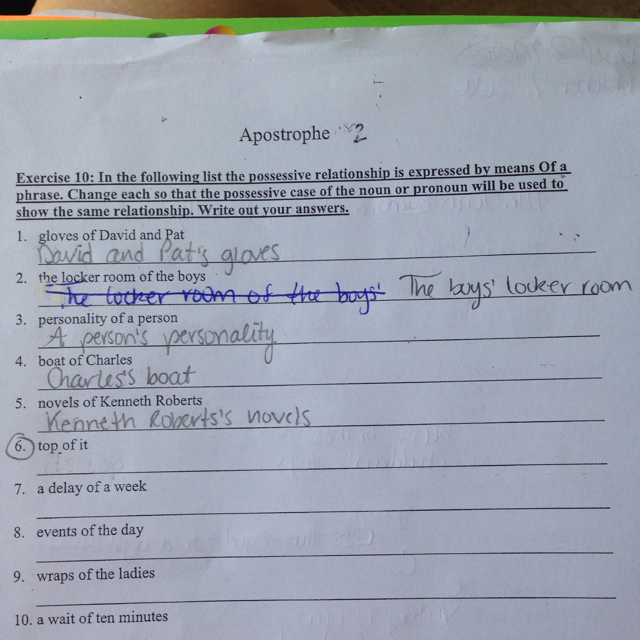 Apostrophe 2
Exercise 10: In the following list the possessive relationship is expressed by means Of a
phrase. Change each so that the possessive case of the noun or pronoun will be used to
show the same relationship. Write out your answers.
1. gloves of David and Pat
David and Pat's gloves
2. the locker room of the boys
The locker room of the boys' The boys' locker room
3. personality of a person
A person's personality
4. boat of Charles
Charles's boat
5. novels of Kenneth Roberts
Kenneth Roberts's novels
6. top of it
7. a delay of a week
8. events of the day
9. wraps of the ladies
10. a wait of ten minutes